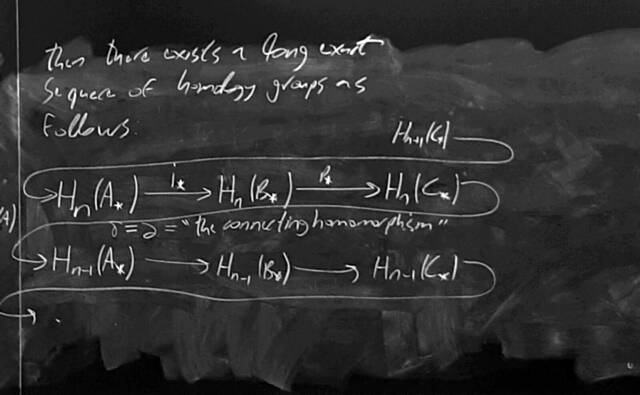 then there exists a long exact
sequence of homology groups as
follows:
Hₙ₊₁(C_*)
→ Hₙ(A_*) —i_*→ Hₙ(B_*) —p_*→ Hₙ(C_*)
∂ = "the connecting homomorphism"
→ Hₙ₋₁(A_*) → Hₙ₋₁(B_*) → Hₙ₋₁(C_*)
→ .